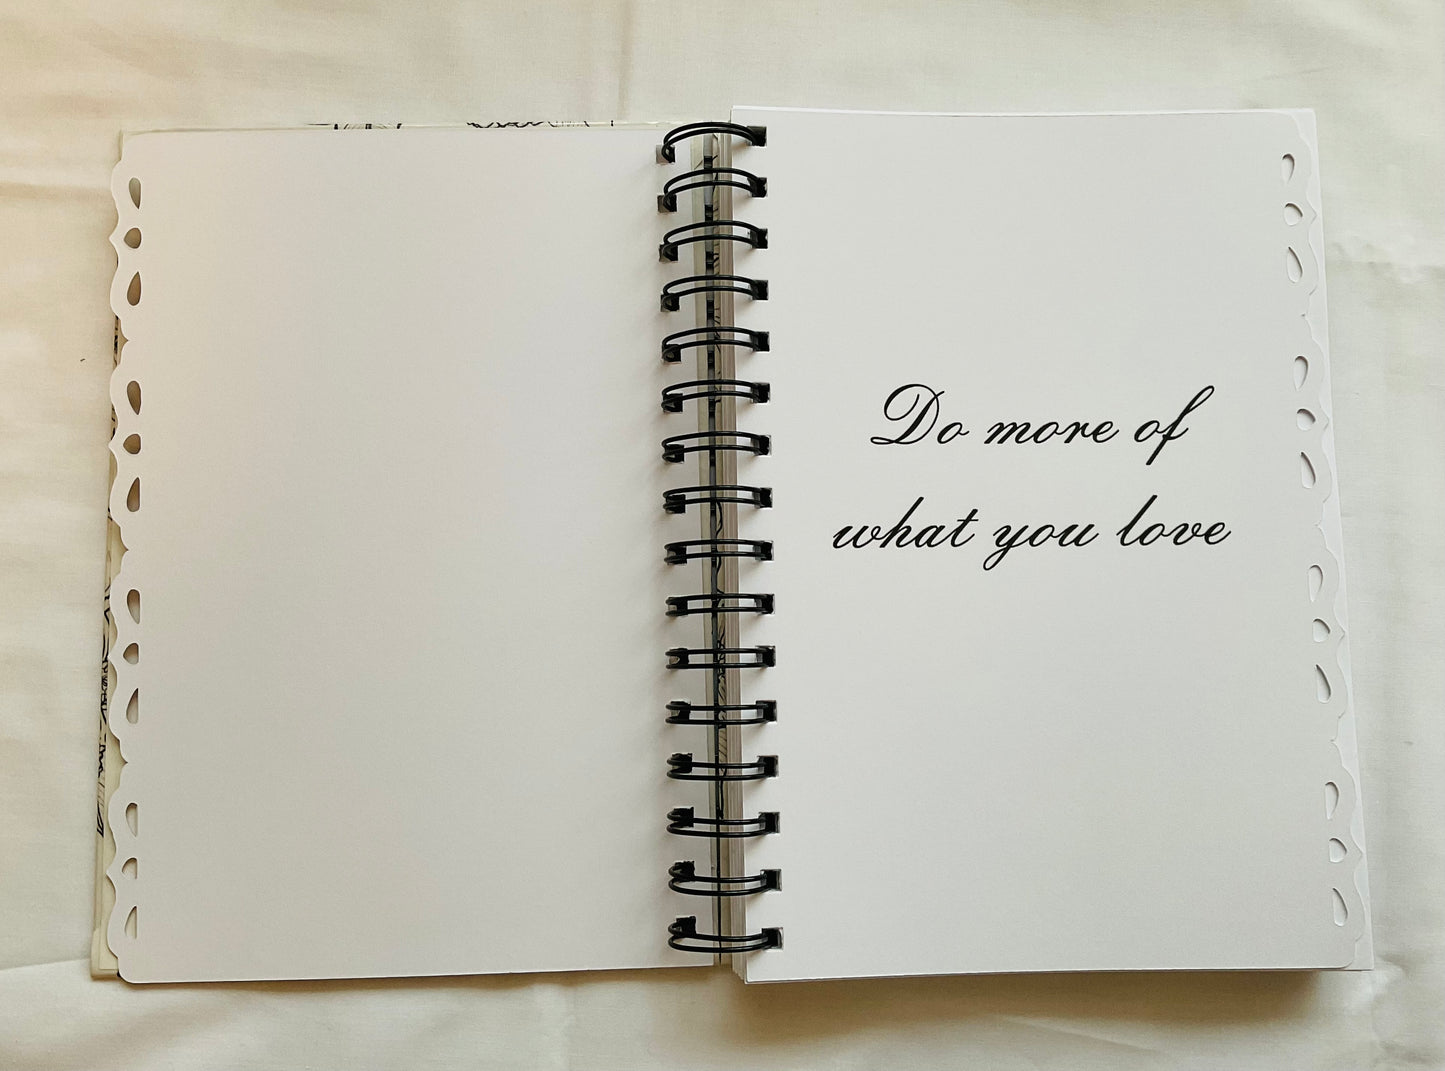 Do more of
what you love